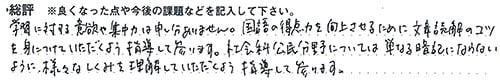 総評 ※良くなった点や今後の課題などを記入して下さい。
学習に対する意欲や集中力は申し分ありません。国語の得点力を向上させるために文章読解のコツ
を身につけていただくよう指導して参ります。社会科公民分野については単なる暗記にならない
ように、様々なしくみを理解していただくよう指導して参ります。